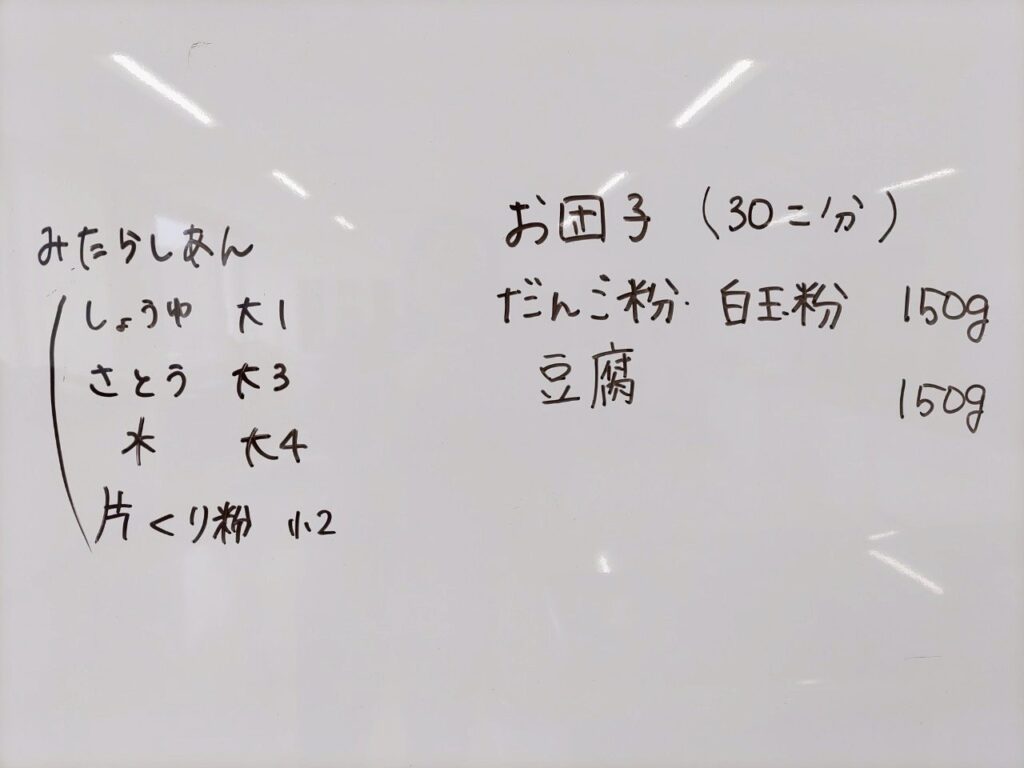 みたらしあん
しょうゆ 大1
さとう 大3
水 大4
片くり粉 小2
お団子 (30コ分)
だんご粉・白玉粉 150g
豆腐 150g